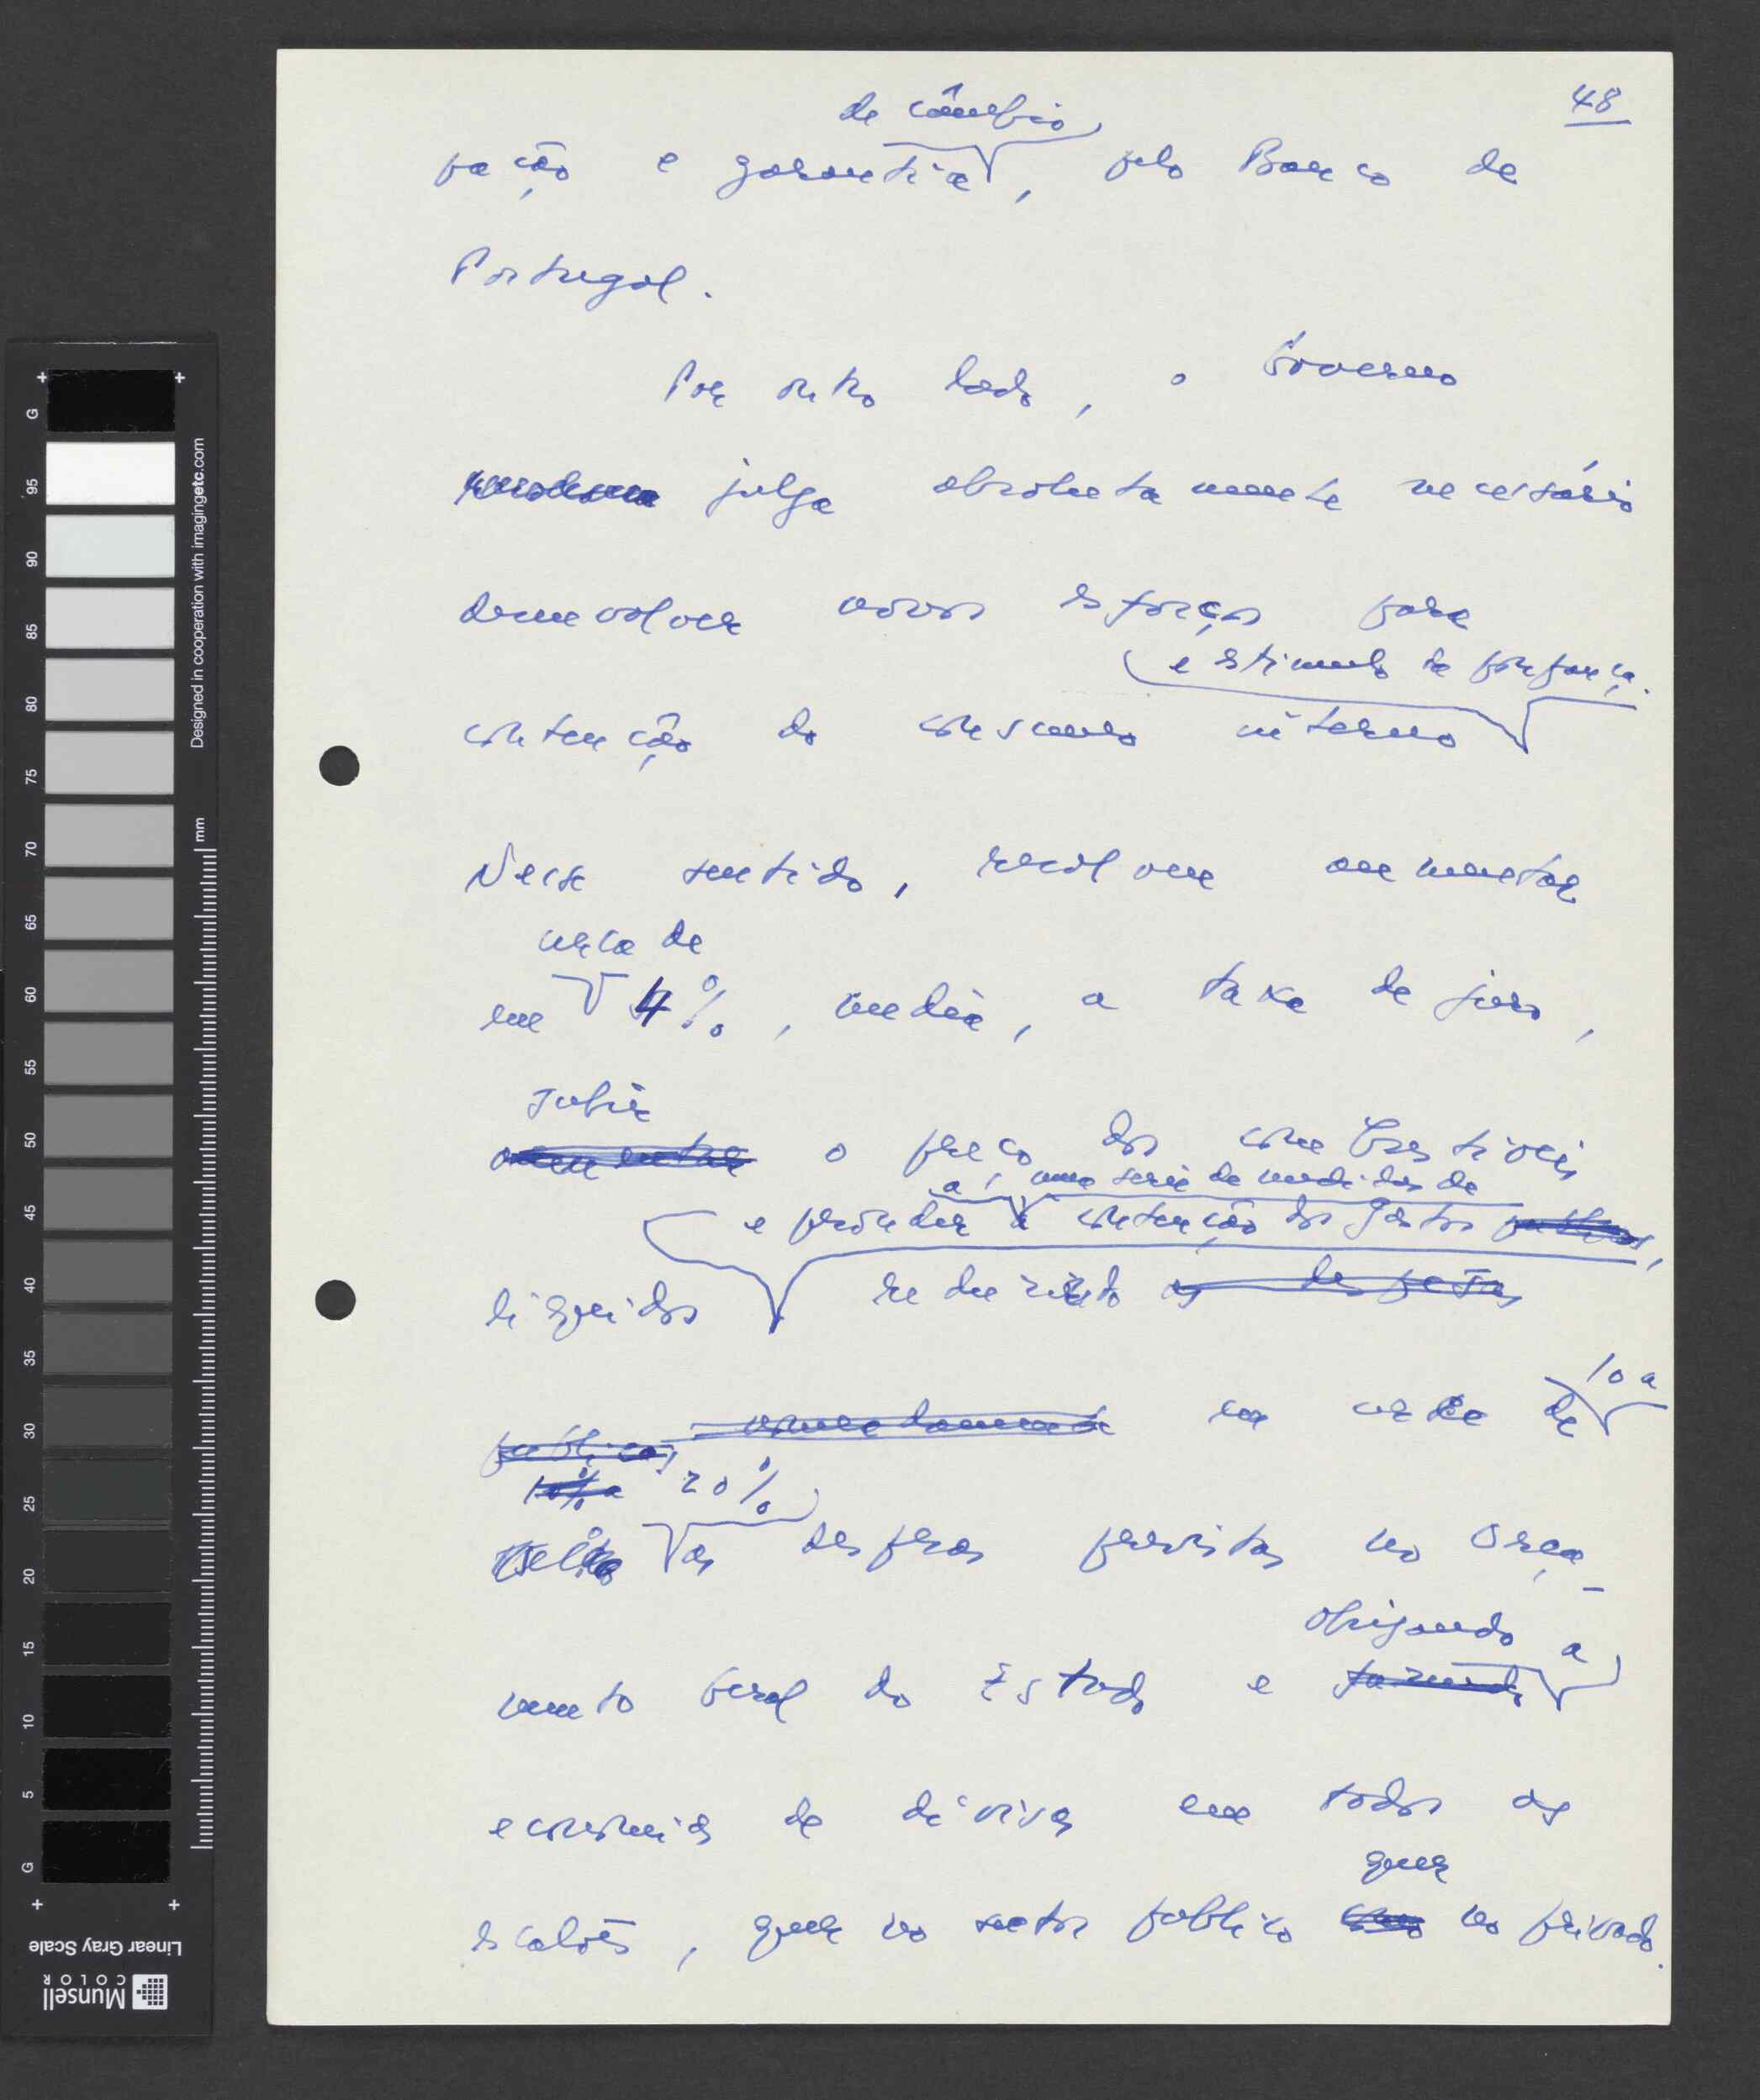 48
de câmbio
pação e garantia, pelo Banco de
Portugal.
Por outro lado, o Governo
julga absolutamente necessário
desenvolver novos esforços para
e estímulo da poupança.
contenção do consumo interno
Nesse sentido, resolveu aumentar
cerca de
em 4%, média, a taxa de juro,
subir
aumentar o preço dos combustíveis
a uma série de medidas de
e proceder à contenção dos gastos públicos,
líquidos reduzindo as despesas
públicas em cerca de 10 a
10% a 20%
as despesas previstas no Orça-
obrigando a
mento Geral do Estado e fazendo
economias de divisas em todos os
quer
escalões, quer no sector público como no privado.
G 95 90 85 80 75 70 65 60 55 50 45 40 35 30 25 20 15 10 5 G
mm
Designed in cooperation with imagingetc.com
Linear Gray Scale
Munsell
COLOR